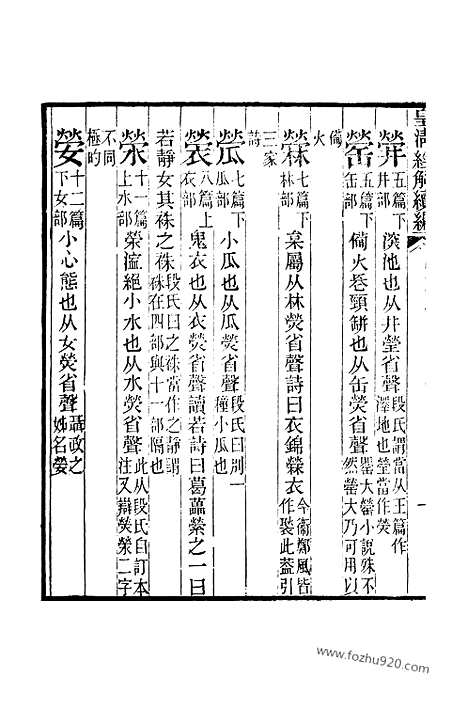 皇清經解續編
五篇下井部深池也从井瑩省聲段氏謂當从王篇作澤地也瑩當作熒
罃五篇下缶部備火長頸缾也从缶熒省聲罌大罃小說殊不然罃大乃可用以
備火
檾七篇下林部枲屬从林熒省聲詩曰衣錦檾衣今衞鄭風皆作褧此蓋引
三家詩
㼆七篇下瓜部小瓜也从瓜熒省聲段氏曰別一種小瓜也
褮八篇上衣部鬼衣也从衣熒省聲讀若詩曰葛藟縈之一曰
若靜女其袾之袾段氏曰之袾當作之靜謂袾在四部與十一部隔也
滎十一篇上水部滎溋絕小水也从水熒省聲此从段氏自訂本注又辯熒滎二字
不同極昀
嫈十二篇下女部小心態也从女熒省聲聶政之姊名嫈
www.fozhu920.com